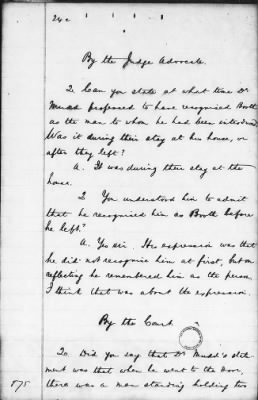 24c
By the Judge Advocate.
Q. Can you state at what time Dr
Mudd professed to have recognised Booth
as the man to whom he had been introduced.
Was it during their stay at his house, or
after they left?
A. It was during their stay at the
house.
Q You understood him to admit
that he recognised him as Booth before
he left?
A. Yes sir. His expression was that
he did not recognise him at first, but on
reflecting he remembered him as the person.
I think that was about the expression.
By the Court
Q. Did you say that Dr Mudd's state-
ment was that when he went to the door,
there was a man standing holding two
575